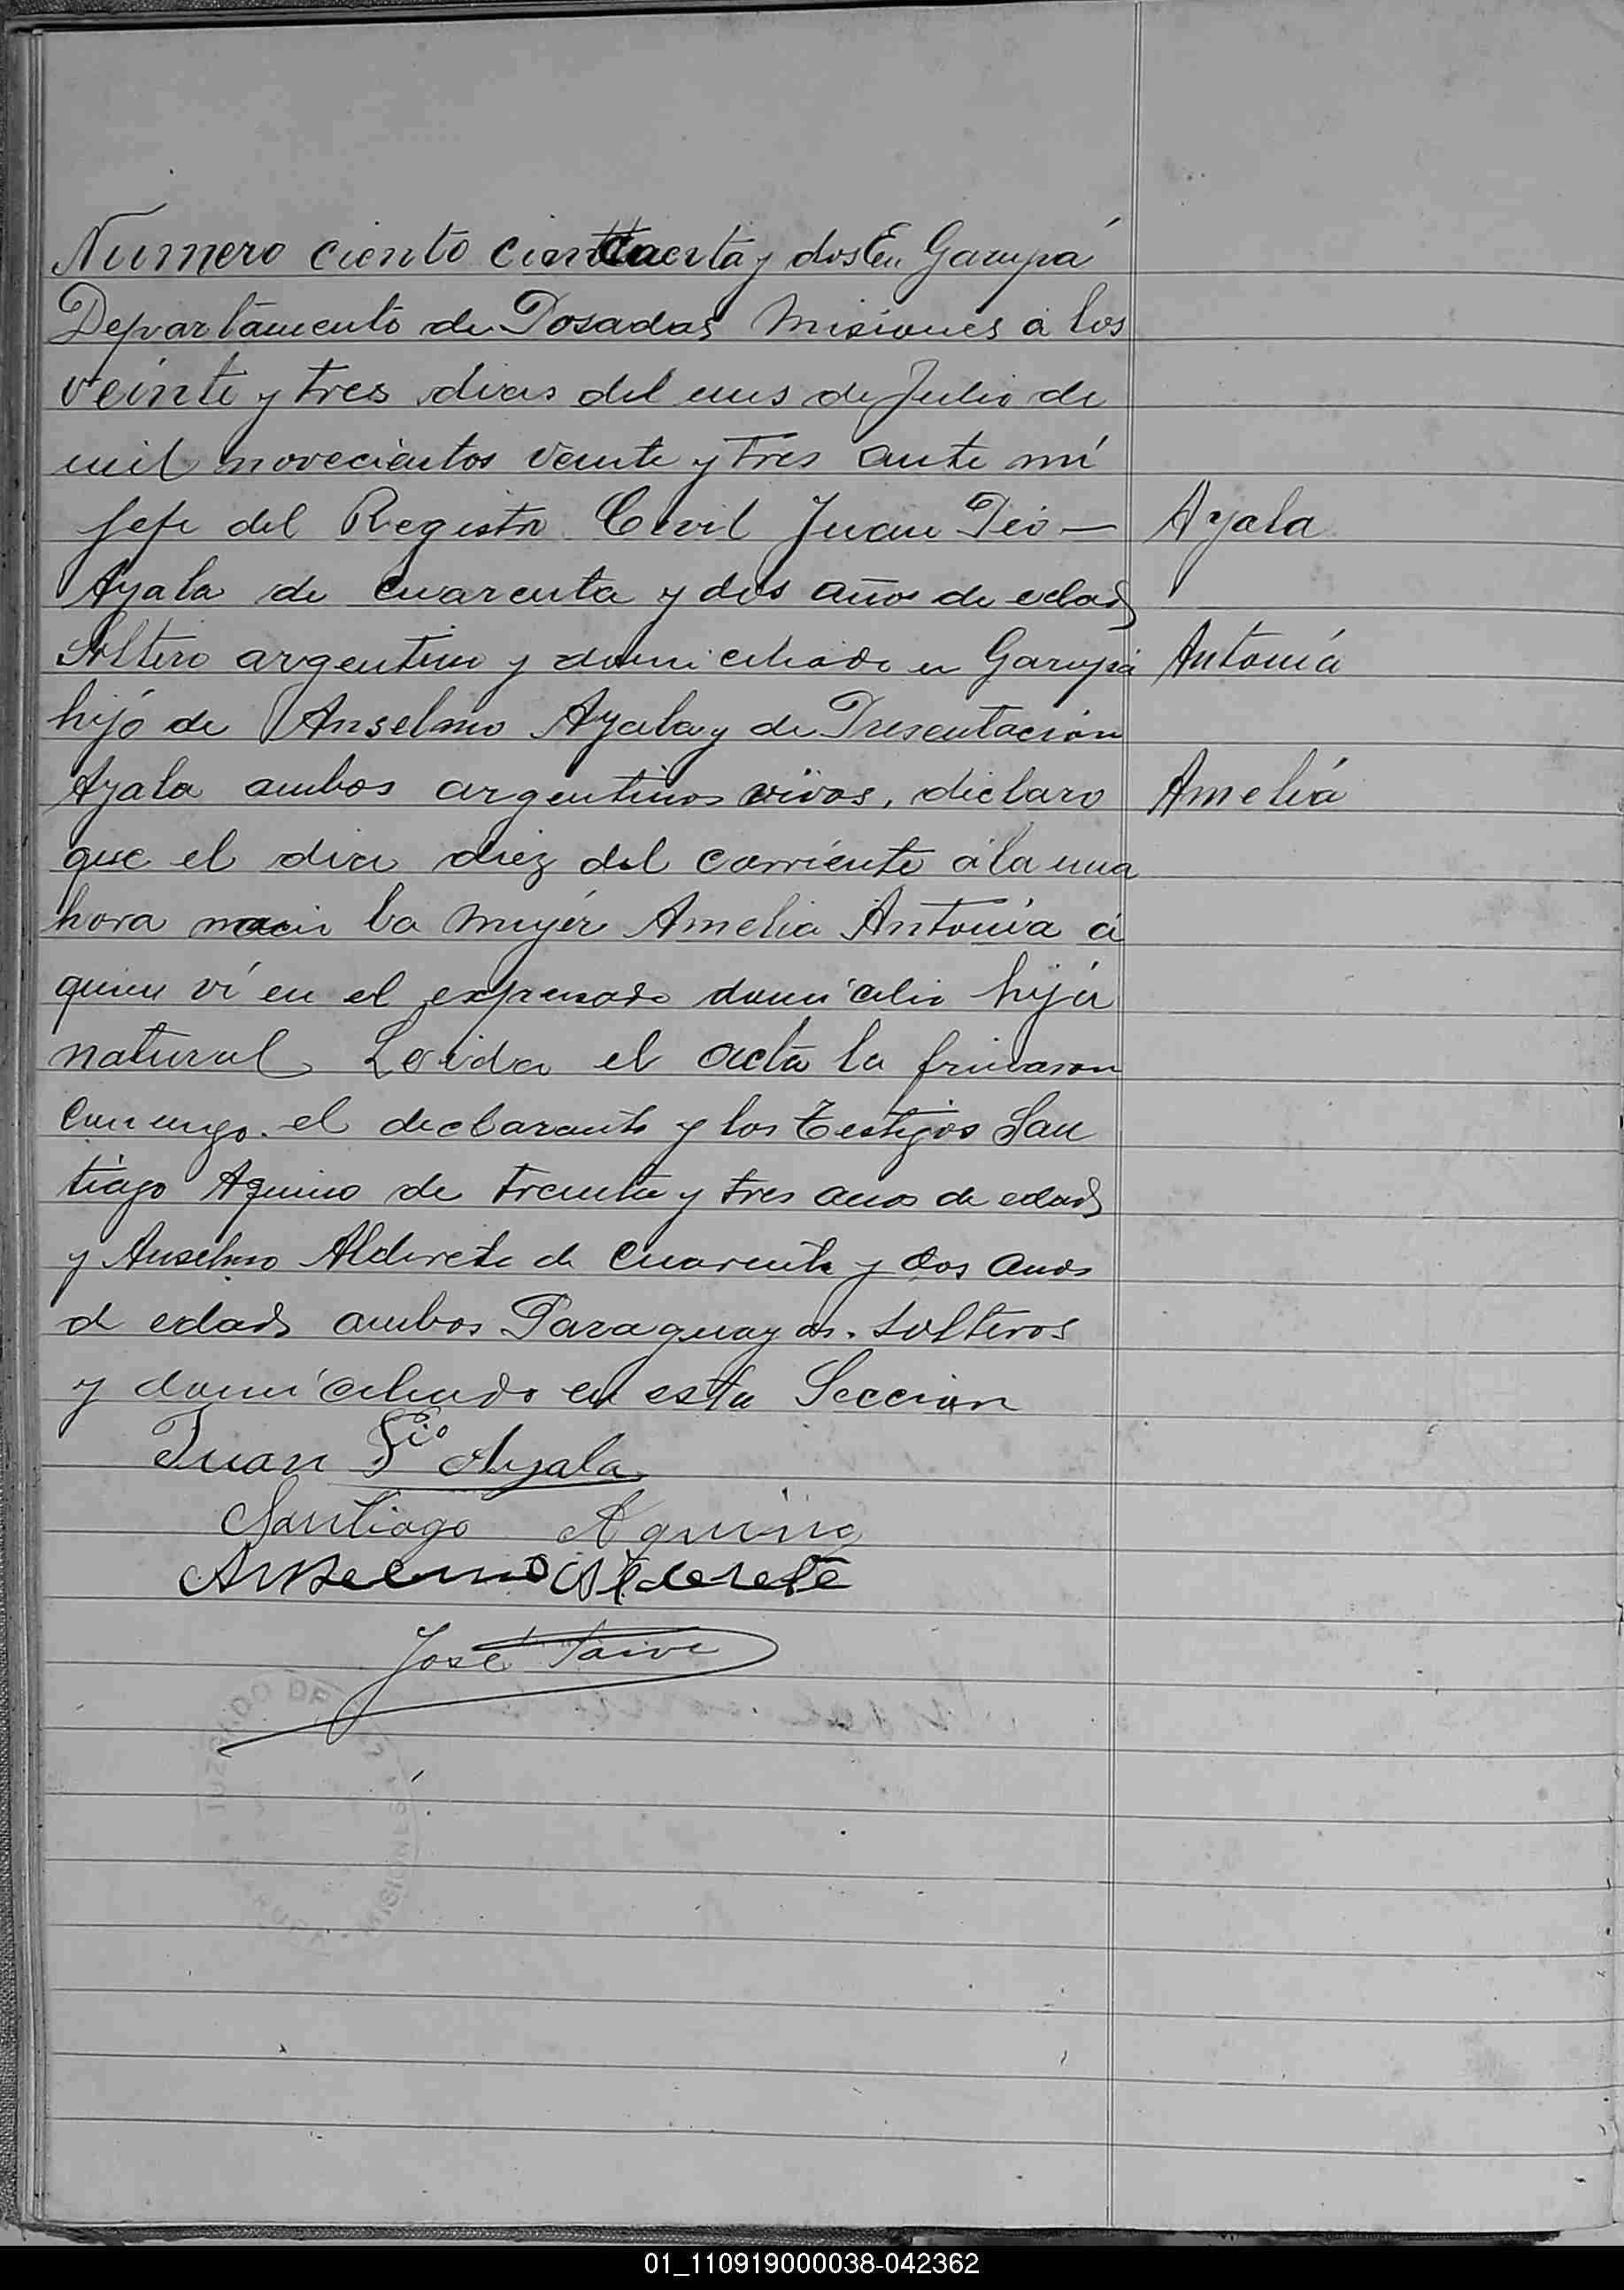 Numero ciento cincuenta y dos En Garupá
Departamento de Posadas Misiones á los
veinte y tres dias del mes de Julio de
mil novecientos veinte y tres ante mí
Jefe del Registro Civil Juan Pio —
Ayala de cuarenta y dos años de edad
soltero argentino y domiciliado en Garupá
hijo de Anselmo Ayala y de Presentacion
Ayala ambos argentinos vivos, declaro
que el dia diez del corriente á la una
hora nacio la mujer Amelia Antonia á
quien ví en el expresado domicilio hija
natural Leida el acta la firmaron
conmigo el declarante y los testigos San
tiago Aquino de treinta y tres anos de edad
y Anselmo Alderete de cuarenta y dos anos
d edad ambos Paraguayos. solteros
y domiciliado en esta Seccion
Juan Pio Ayala
Santiago Aquino
Anselmo Alderete
José Paiva
Ayala
Antonia
Amelia
JUZGADO DE
MISIONES
01_110919000038-042362